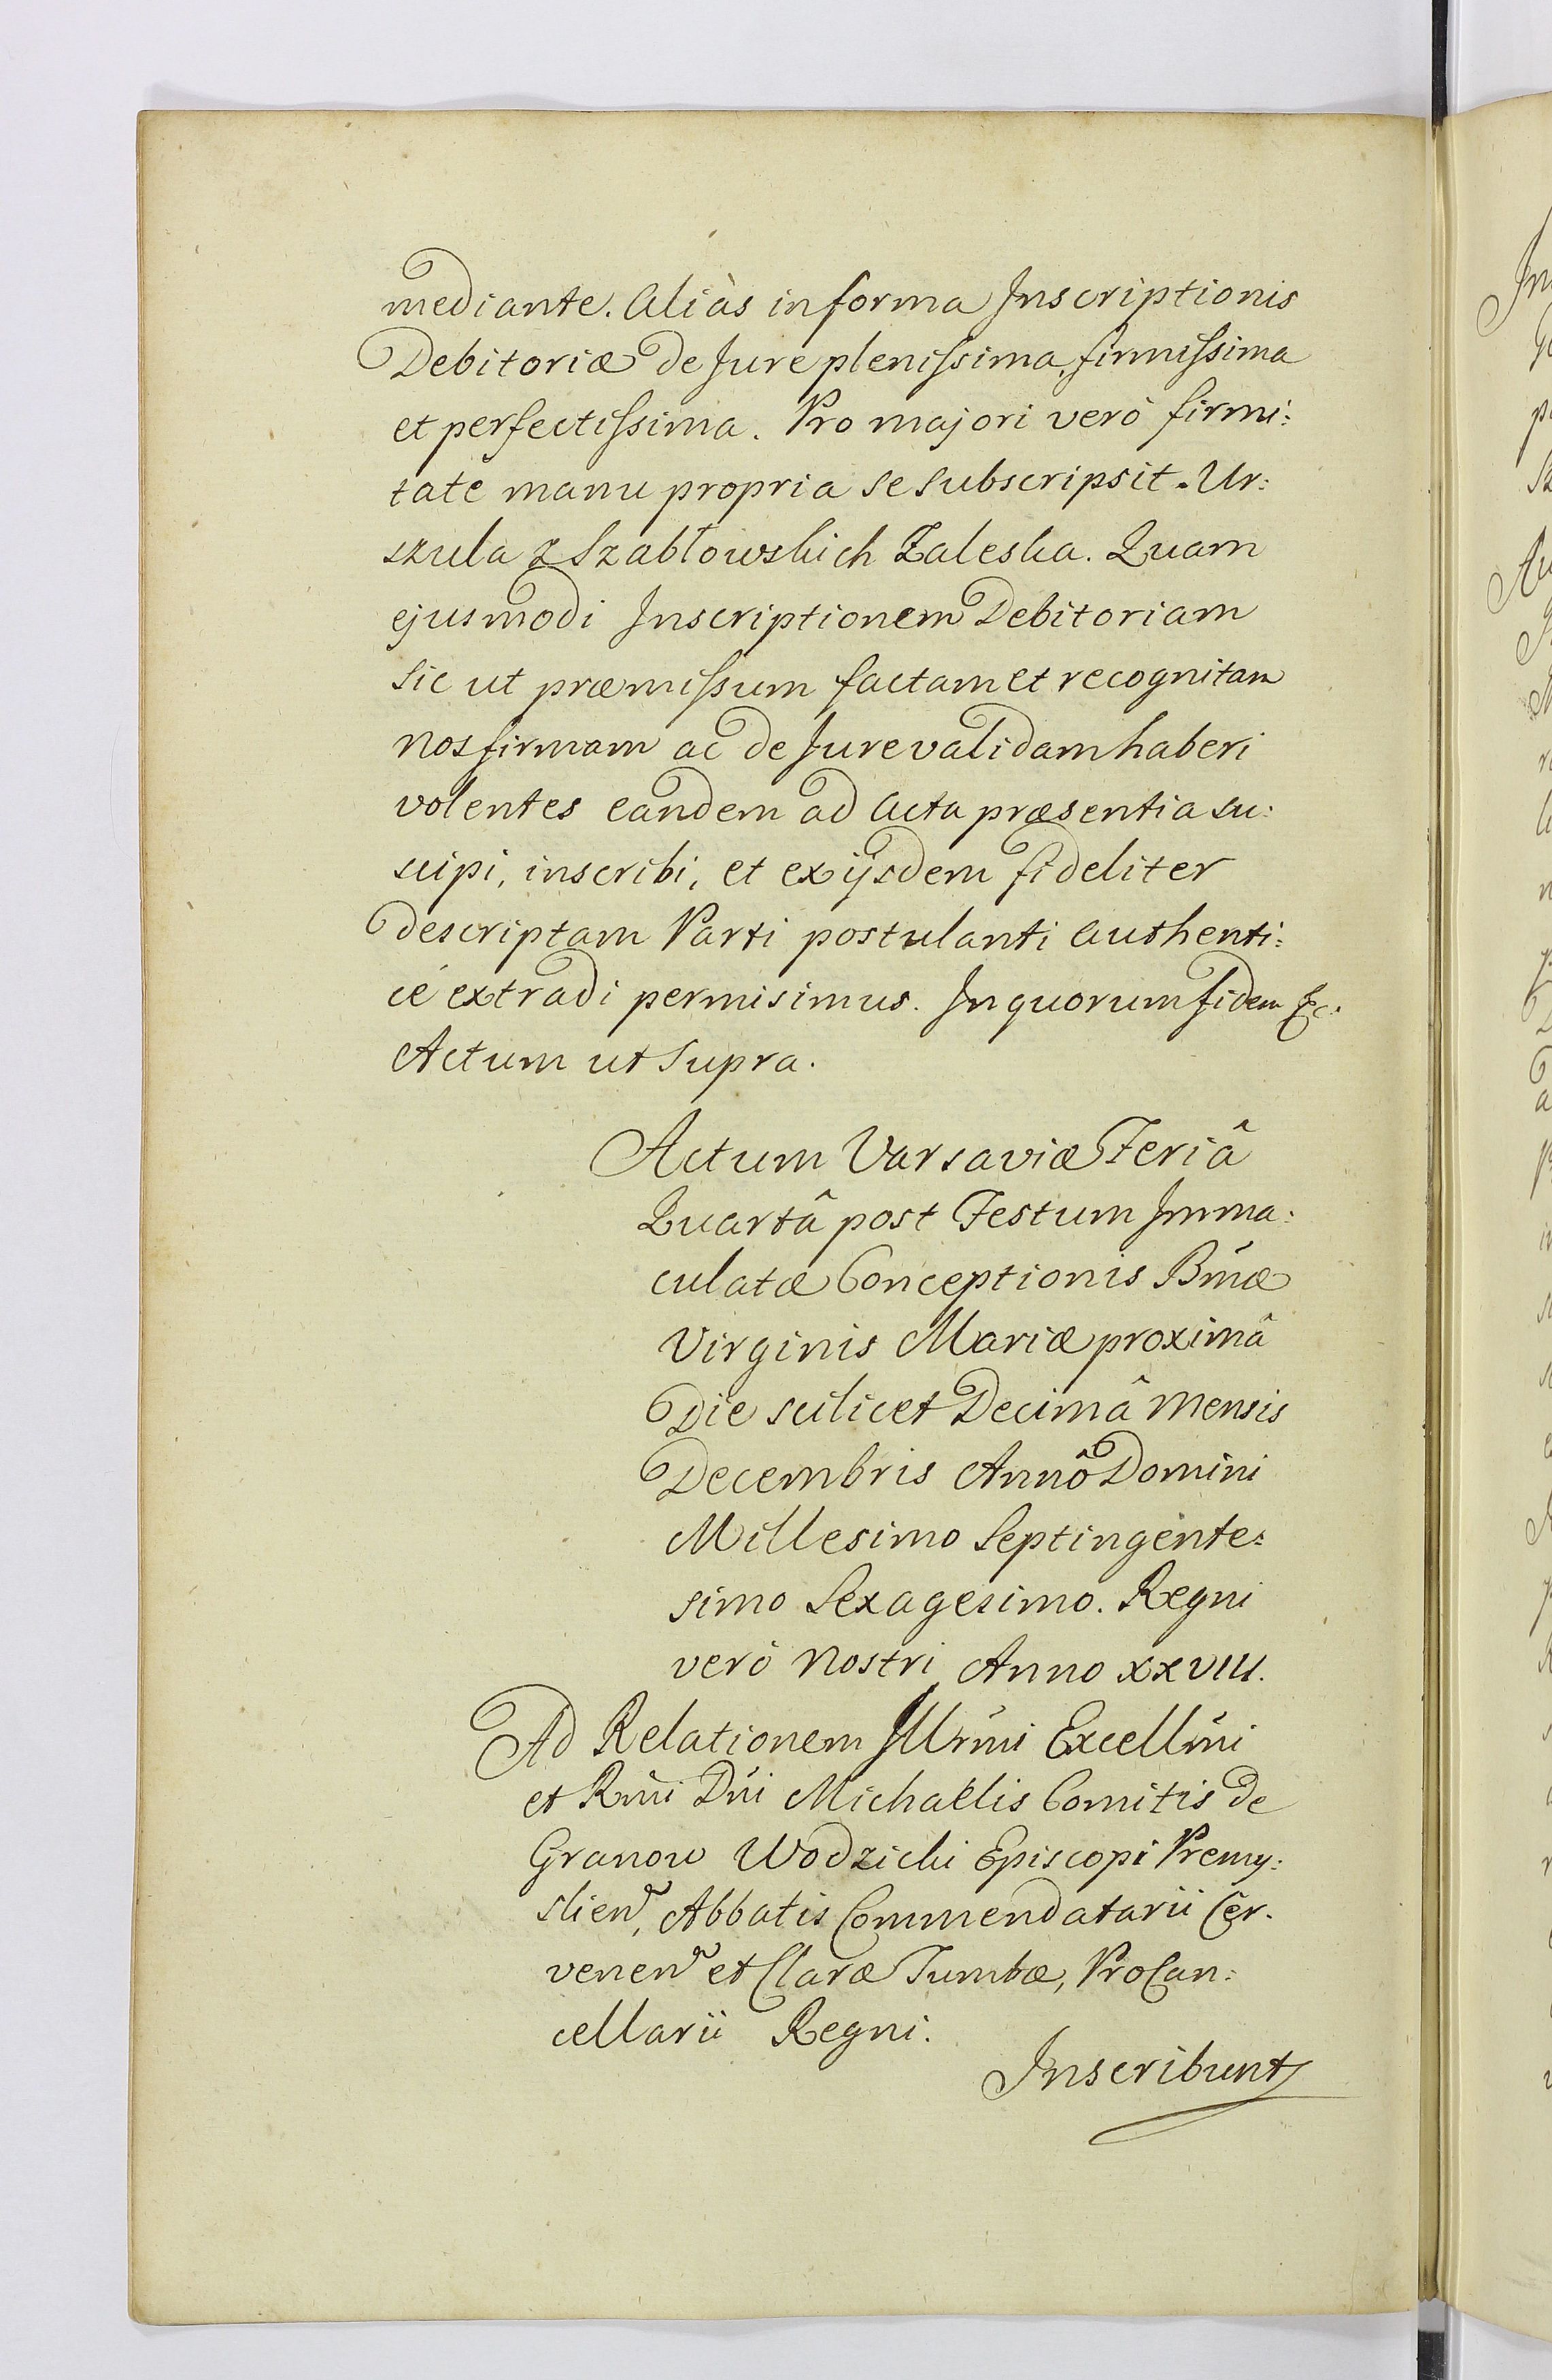 mediante. Aliàs in forma Inscriptionis
Debitoriæ de Jure plenissima, firmissima
et perfectissima. Pro majori verò firmi:
tate manu propria se subscripsit. Ur:
szula z Szabłowskich Zaleska. Quam
ejusmodi Inscriptionem Debitoriam
sic ut præmissum factam et recognitam
nos firmam ac de Jure validam haberi
volentes eandem ad Acta præsentia su:
scipi, inscribi, et ex ijsdem fideliter
descriptam Parti postulanti authenti:
cè extradi permisimus. In quorum fidem &c.
Actum ut supra.
Actum Varsaviæ Feriâ
Quartâ post Festum Imma:
culatæ Conceptionis Bmæ
Virginis Mariæ proximâ
Die scilicet Decimâ Mensis
Decembris Annô Domini
Millesimo Septingente:
simo Sexagesimo. Regni
verò Nostri Anno XXVIII.
Ad Relationem Illrmi Excellmi
et Rmi Dni Michaelis Comitis de
Granow Wodzicki Episcopi Premy:
slien, Abbatis Commendatarii Cer.
venen et Claræ Tumbæ, ProCan:
cellarii Regni.
Inscribunt